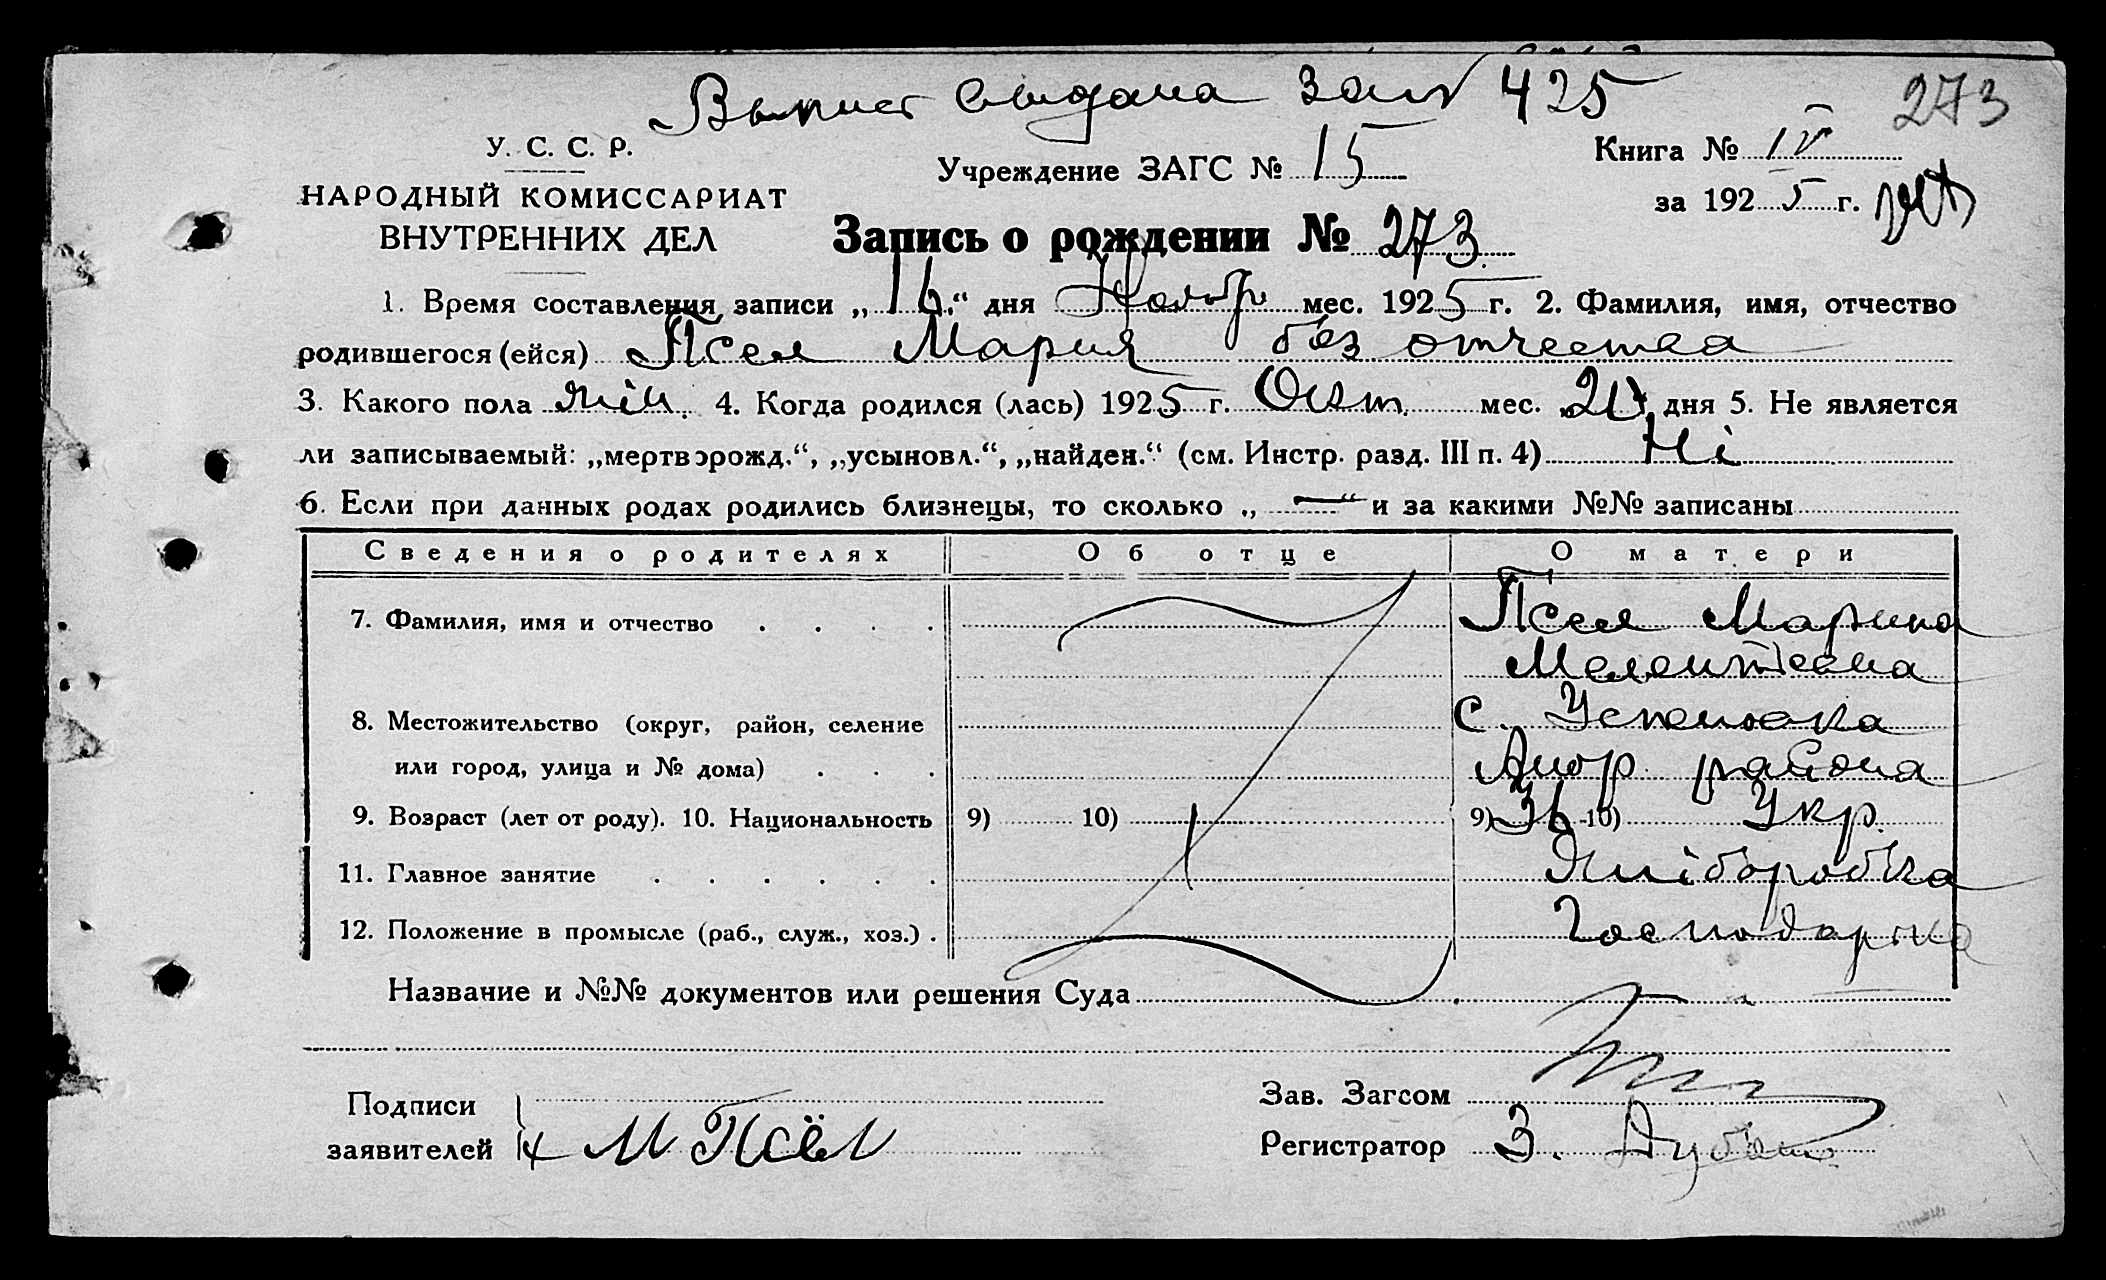 Выпис выдана 425
273
У. С. С. Р.
НАРОДНЫЙ КОМИССАРИАТ
ВНУТРЕННИХ ДЕЛ
Учреждение ЗАГС № 15
Книга № IV
за 1925 г.
Запись о рождении № 273
1. Время составления записи „16“ дня Ноябр мес. 1925 г. 2. Фамилия, имя, отчество
родившегося (ейся) Псел Мария без отчества
3. Какого пола жін. 4. Когда родился (лась) 1925 г. Окт. мес. дня 5. Не является
ли записываемый: „мертворожд.“, „усыновл.“, „найден.“ (см. Инстр. разд. III п. 4) Ні
6. Если при данных родах родились близнецы, то сколько „ — “ и за какими №№ записаны
Сведения о родителях Об отце О матери
7. Фамилия, имя и отчество . . . . Псел Марина
Мелентьевна
8. Местожительство (округ, район, селение с. Успеновка
или город, улица и № дома) . . . района
9. Возраст (лет от роду). 10. Национальность 9) 10) 9) 36 10) Укр.
11. Главное занятие . . . . . . Хліборобка
12. Положение в промысле (раб., служ., хоз.) . Господарка
Название и №№ документов или решения Суда
Подписи
заявителей М Псёл
Зав. Загсом
Регистратор З.